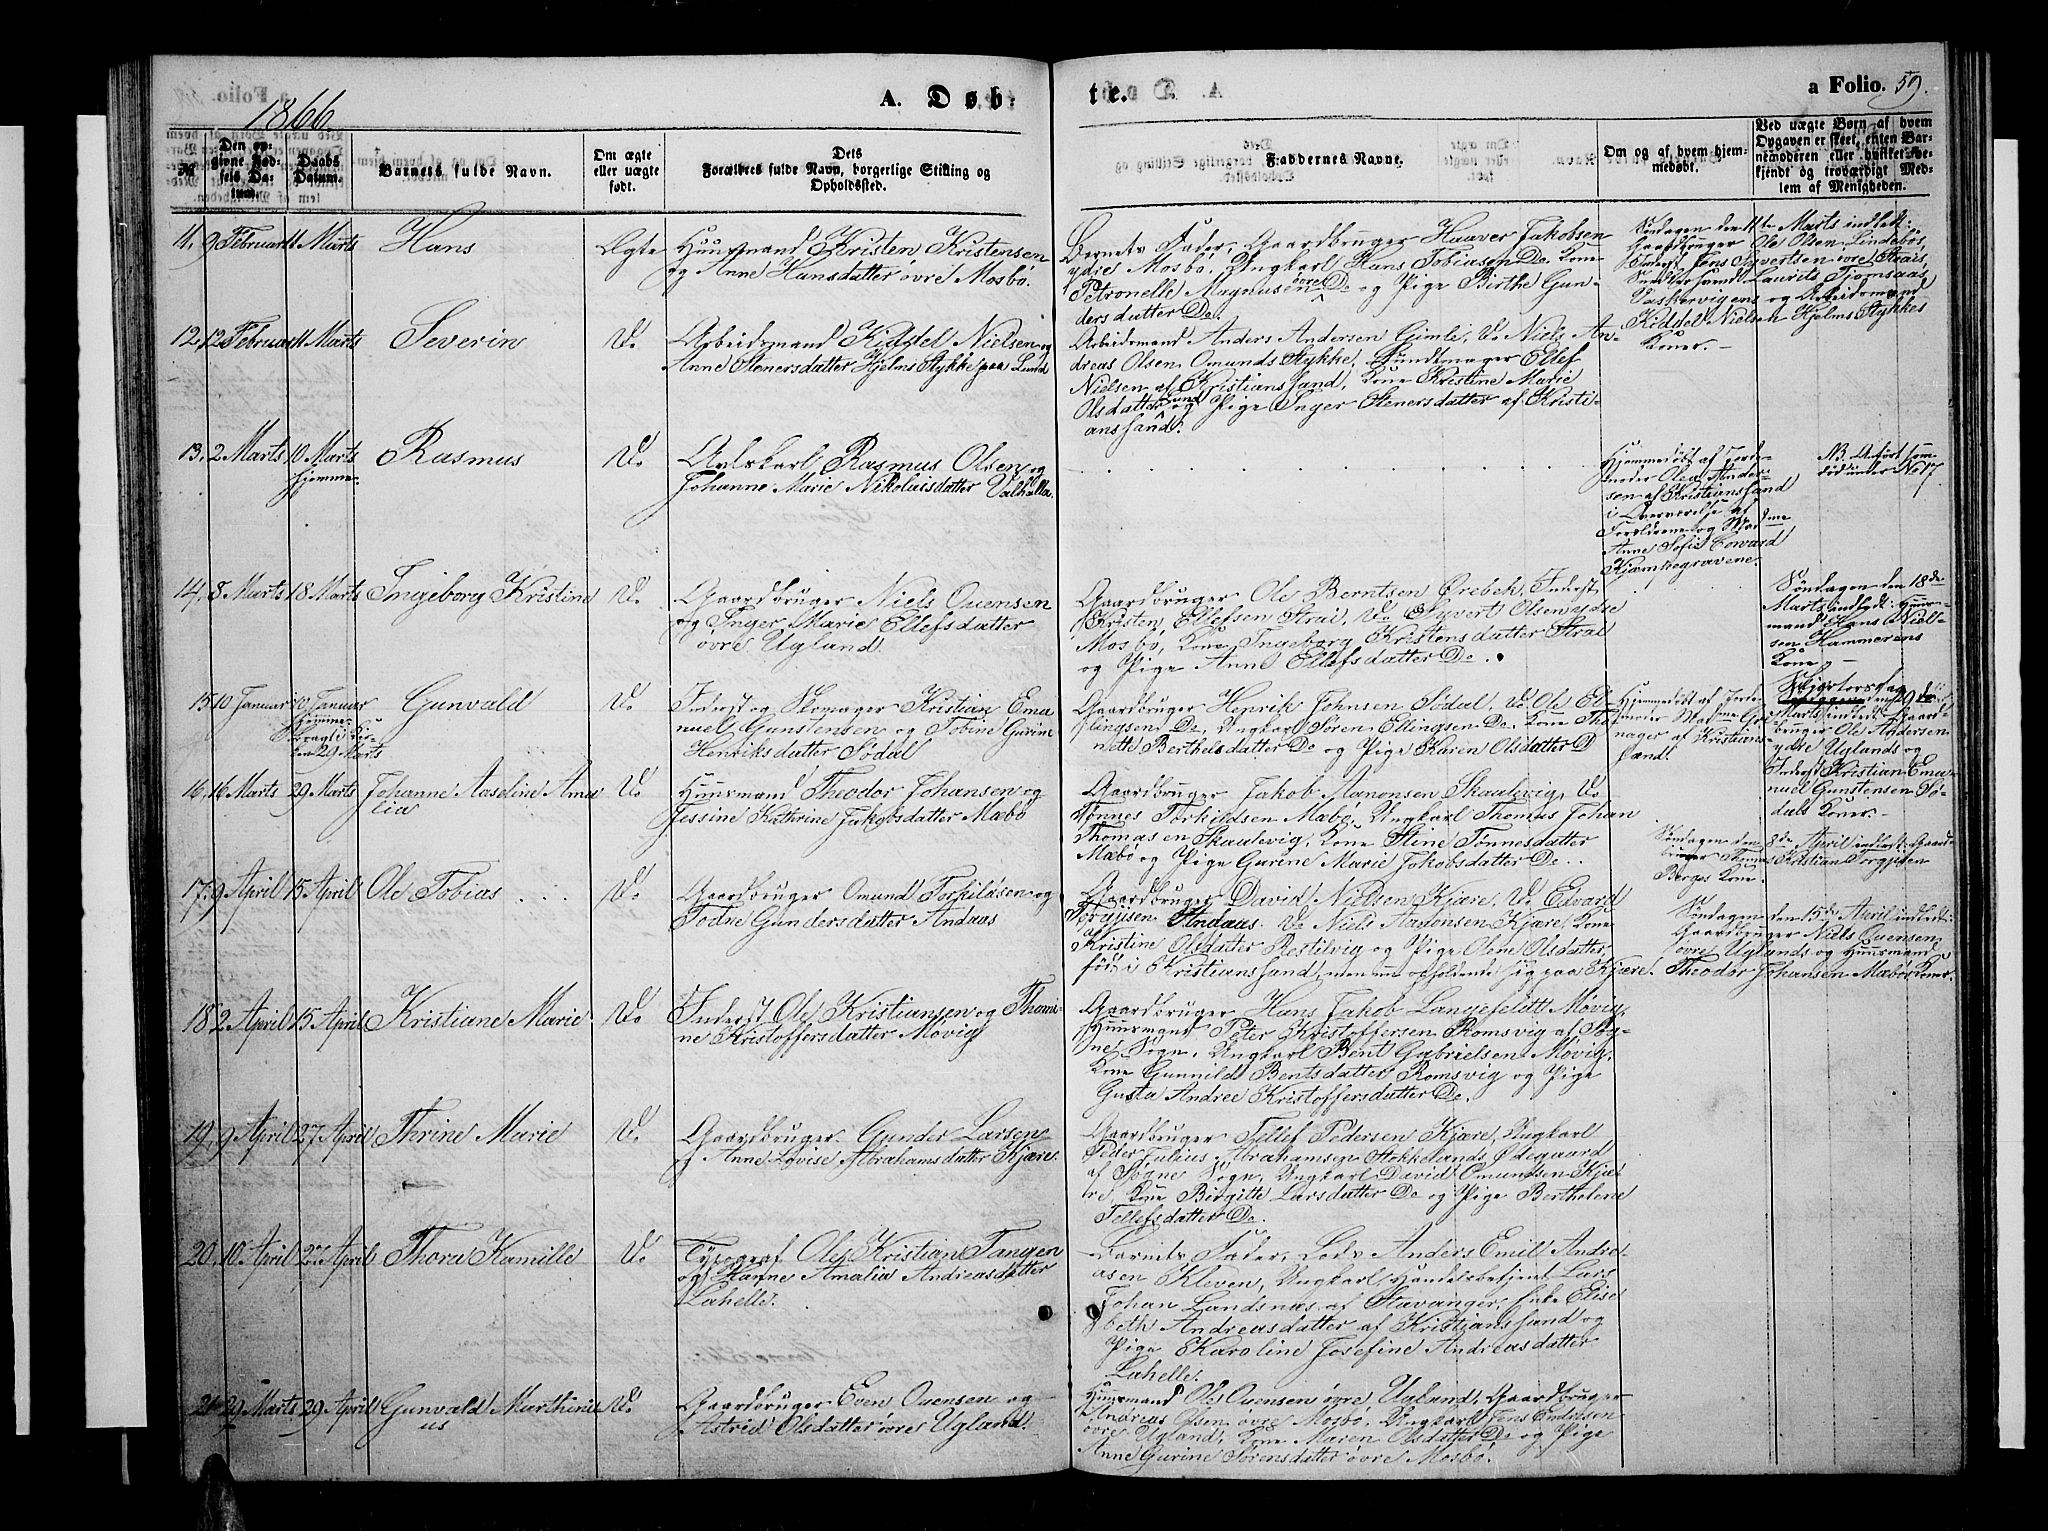 1866
A. Døb-
te.
a Folio. 59.
№
Den op-
givne Fød-
sels Da-
tum.
Daabs
Datum.
Barnets fulde Navn.
Om ægte
eller uægte
født.
Dets
Forældres fulde Navn, borgerlige Stilling og
Opholdssted.
Faddernes Navne.
Om og af hvem hjem-
medøbt.
Ved uægte Børn af hvem
Opgaven er skeet, enten Bar-
nemoderen eller hvilket be-
kjendt og troværdigt Med-
lem af Menigheden.
11. 9 Februar 11 Marts
Hans
Ægte
Huusmand Kristen Kristensen
og Anne Hansdatter øvre Mosbø.
Barnets Fader, Gaardbruger Haaver Jakobsen
ydre Mosbø, Ungkarl Hans Tobiassen Do. Kone
Petronelle Magnusen øvre Do og Pige Birthe Gun-
dersdatter Do.
Søndagen den 11te Marts indledt:
Gaardbruger Ole Olsen Lindebøs,
Inderst Jens Syvertsen øvre Strais,
Laurits Tjomsaas
og Arbeidsmand
Kiddel Nielsen Hjelms Stykkes
Koner.
12. 12 Februar 11 Marts
Severin
Do
Arbeidsmand Kiddel Nielsen og
Anne Stenersdatter Hjelms Stykke paa Lund
Arbeidsmand Anders Andersen Gimle, Do Niels An-
dreas Olsen Omunds Stykke, Bundtmager Ellef
Nielsen af Kristianssand, Kone Kristine Marie
Olsdatter Lund og Pige Inger Stenersdatter af Kristi-
anssand.
13. 2 Marts 10 Marts
hjemme
Rasmus
Do
Avlskarl Rasmus Olsen og
Johanne Marie Nikolaisdatter Valhalla.
Hjemmedøbt af Jorde-
moder Olea Ander-
sen af Kristianssand
i Overværelse af
Forældrene og Madme
Anne Sofie Coward
Kjæmpegravene.
NB. Anført som
død under No 17.
14. 8 Marts 18 Marts
Ingeborg Kristine
Do
Gaardbruger Niels Ouensen
og Inger Marie Ellefsdatter
øvre Ugland
Gaardbruger Ole Berntsen Ørebek, Inderst
Kristen Ellefsen Strai, Do Syvert Olsen ydre
Mosbø, Kone Ingeborg Kristensdatter Strai
og Pige Anne Ellefsdatter Do.
Søndagen den 18de
Marts indledt: Huus-
mand Hans Niel-
sen Hammerens
Kone
15. 10 Januar 10 Januar
hjemme
bragt i Kir-
ken 29 Marts
Gunvald
Do
Inderst og Skomager Kristian Ema
nuel Gunstensen og Tobine Gurine
Henriksdatter Sødal
Gaardbruger Henrik Johnsen Sødal, Do Ole El-
lingsen Do, Ungkarl Søren Ellingsen Do, Kone Tho-
nette Berthelsdatter Do og Pige Karen Olsdatter Do
Hjemmedøbt af Jorde-
moder Madme Go-
nager af Kristians-
sand.
Skjærtorsdag
den 29de
Marts indledt: Gaard-
bruger Ole Andersen
ydre Uglands og
Inderst Kristian Ema-
nuel Gunstensen Sø-
dals Koner.
16. 16 Marts 29 Marts
Johanne Aaseline Ama
lia
Do
Huusmand Theodor Johansen og
Jessine Kathrine Jakobsdatter Mæbø
Gaardbruger Jakob Aanonsen Skaalevig, Do
Tønnes Torkildsen Mæbø, Ungkarl Thomas Johan
Thomasen Skaalevig, Kone Stine Tønnesdatter
Mæbø og Pige Gurine Marie Jakobsdatter Do.
Søndagen den 8de April indledt: Gaard-
bruger Thomas Kristian Torgjusen
Berges Kone.
17. 9 April 15 April
Ole Tobias
Do
Gaardbruger Omund Torkildsen og
Todne Gundersdatter Andaas
Gaardbruger David Nielsen Kjære, Do Edvard
Torgjusen Andaas, Do Niels Aanonsen Kjære, Kone
Kristine Olsdatter Bestilvig og Pige Olene Olsdatter
født i Kristianssand, men nu opholdende sig paa Kjære.
Søndagen den 15de April indledt:
Gaardbruger Niels Ouensen
øvre Uglands og Huusmand
Theodor Johansen Mæbøs Koner.
18. 2 April 15 April
Kristiane Marie
Do
Inderst Ole Kristiansen og Thomi-
ne Kristoffersdatter Møvig
Gaardbruger Hans Jakob Langefeldt Møvig,
Huusmand Peter Kristoffersen Romsvig af Søg-
ne Sogn, Ungkarl Bent Gabrielsen Møvig,
Kone Gunnild Bentsdatter Romsvig og Pige
Gusta Andrea Kristoffersdatter Do.
19. 9 April 27 April
Thrine Marie
Do
Gaardbruger Gunder Larsen
og Anne Lovise Abrahamsdatter Kjære.
Gaardbruger Tellef Pedersen Kjære, Ungkarl
Peder Julius Abrahamsen Stokkelands Ødegaard
af Søgne Sogn, Ungkarl David Omundsen Kjæ-
re, Kone Birgitte Larsdatter Do og Pige Bertholene
Tellefsdatter Do.
20. 10 April 27 April
Thora Kamille
Do
Typograf Ole Kristian Tangen
og Hanne Amalia Andreasdatter
Lahelle.
Barnets Fader, Lods Anders Emil Andre-
asen Kleven, Ungkarl Handelsbetjent Lars
Johan Landsnas af Stavanger, Enke Elisa
beth Andreasdatter af Kristianssand og
Pige Karoline Josefine Andreasdatter
Lahelle.
21. 29 Marts 29 April
Gunvald Marthini
us
Do
Gaardbruger Even Ouensen og
Astrid Olsdatter øvre Ugland.
Huusmand Ole Ouensen øvre Ugland, Gaardbruger
Andreas Olsen øvre Mosbø, Ungkarl Jens Endresen
øvre Ugland, Kone Maren Olsdatter Do og Pige
Anne Gurine Sørensdatter øvre Mosbø.